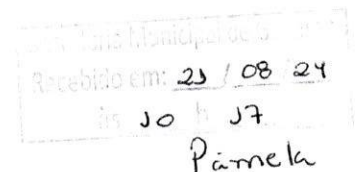 Municipal de
Recebido em: 21 / 08 24
às 10 h 17
Pâmela